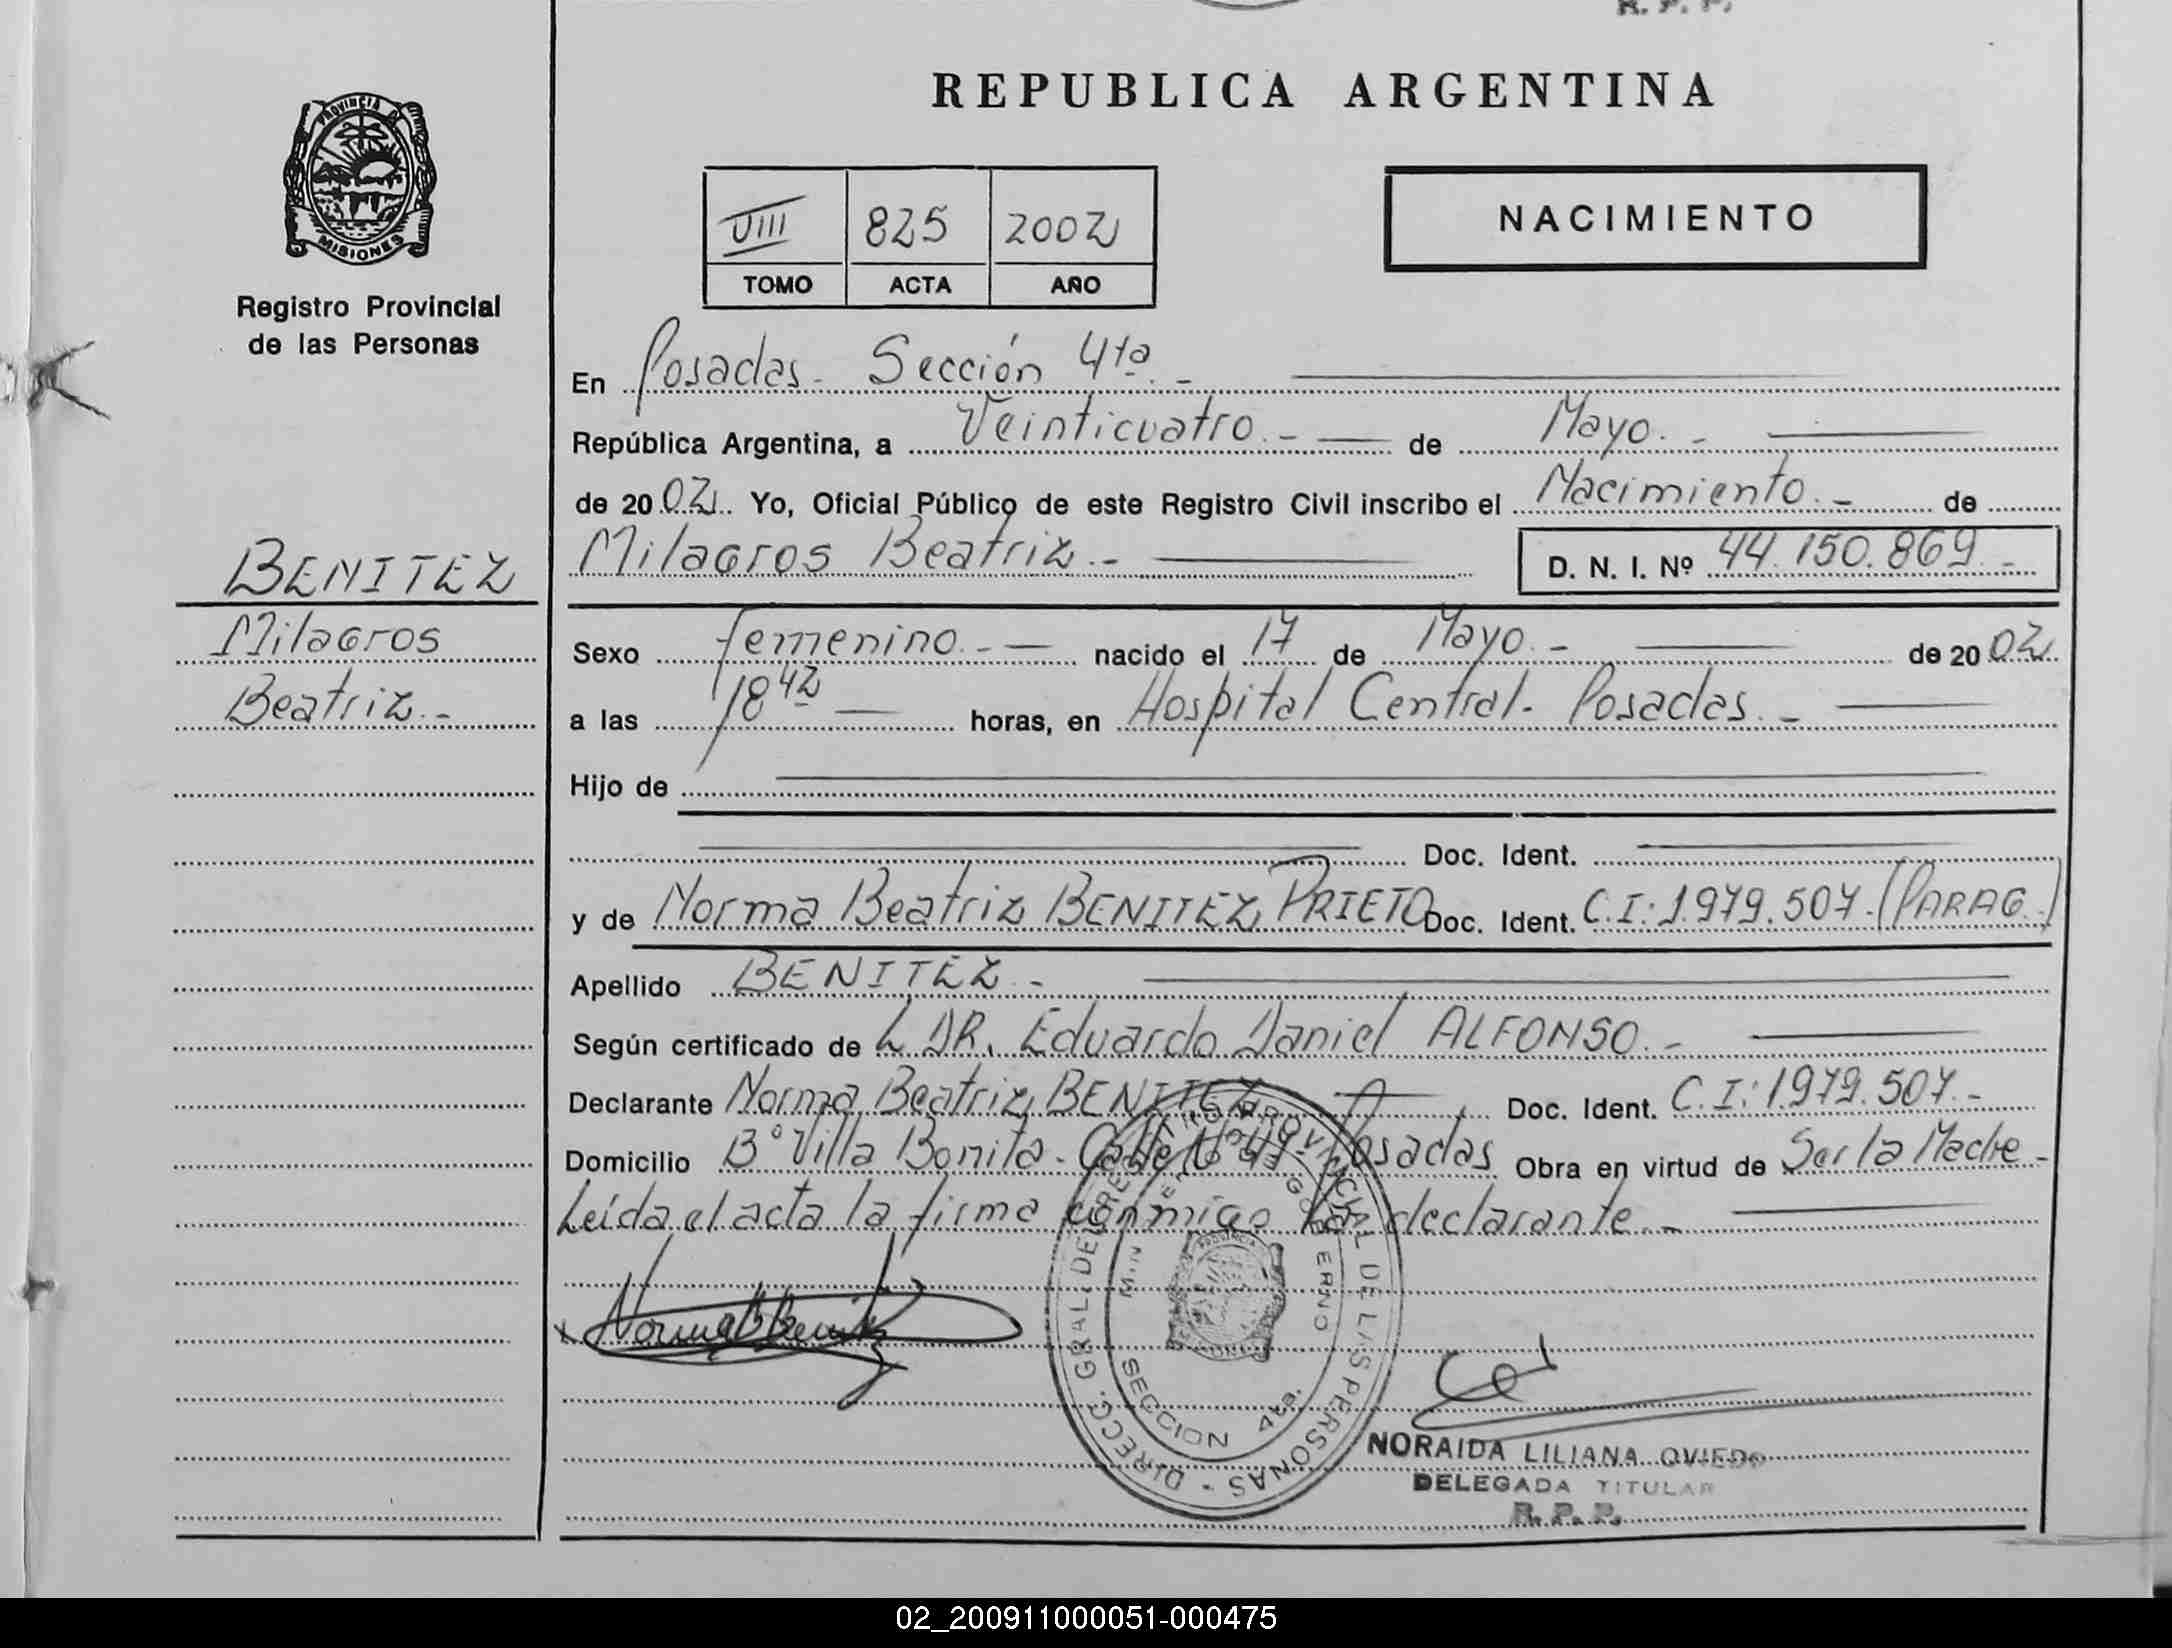 R. P. P.
REPUBLICA ARGENTINA
PROVINCIA DE
MISIONES
Registro Provincial
de las Personas
VIII 825 2002
TOMO ACTA AÑO
NACIMIENTO
En Posadas - Sección 4ta. -
República Argentina, a Veinticuatro. - de Mayo. -
de 20 02. Yo, Oficial Público de este Registro Civil inscribo el Nacimiento. - de
BENITEZ
Milagros Beatriz. - D. N. I. Nº 44.150.869. -
Milagros
Sexo femenino. - nacido el 17 de Mayo. - de 20 02.
Beatriz. -
a las 18 42 horas, en Hospital Central. Posadas. -
Hijo de
Doc. Ident.
y de Norma Beatriz BENITEZ PRIETO Doc. Ident. C.I: 1.979.507. (PARAG.)
Apellido BENITEZ. -
Según certificado de L DR. Eduardo Daniel ALFONSO. -
Declarante Norma Beatriz BENITEZ Doc. Ident. C.I: 1.979.507. -
Domicilio Bº Villa Bonita - Calle Nº 47 - Posadas Obra en virtud de Ser la Madre -
Leída el acta la firma conmigo la declarante. -
Norma B Benitez
DIRECC. GRAL. DEL REGISTRO PROVINCIAL DE LAS PERSONAS -
SECCION 4ta.
NORAIDA LILIANA OVIEDO
DELEGADA TITULAR
R. P. P.
02_200911000051-000475